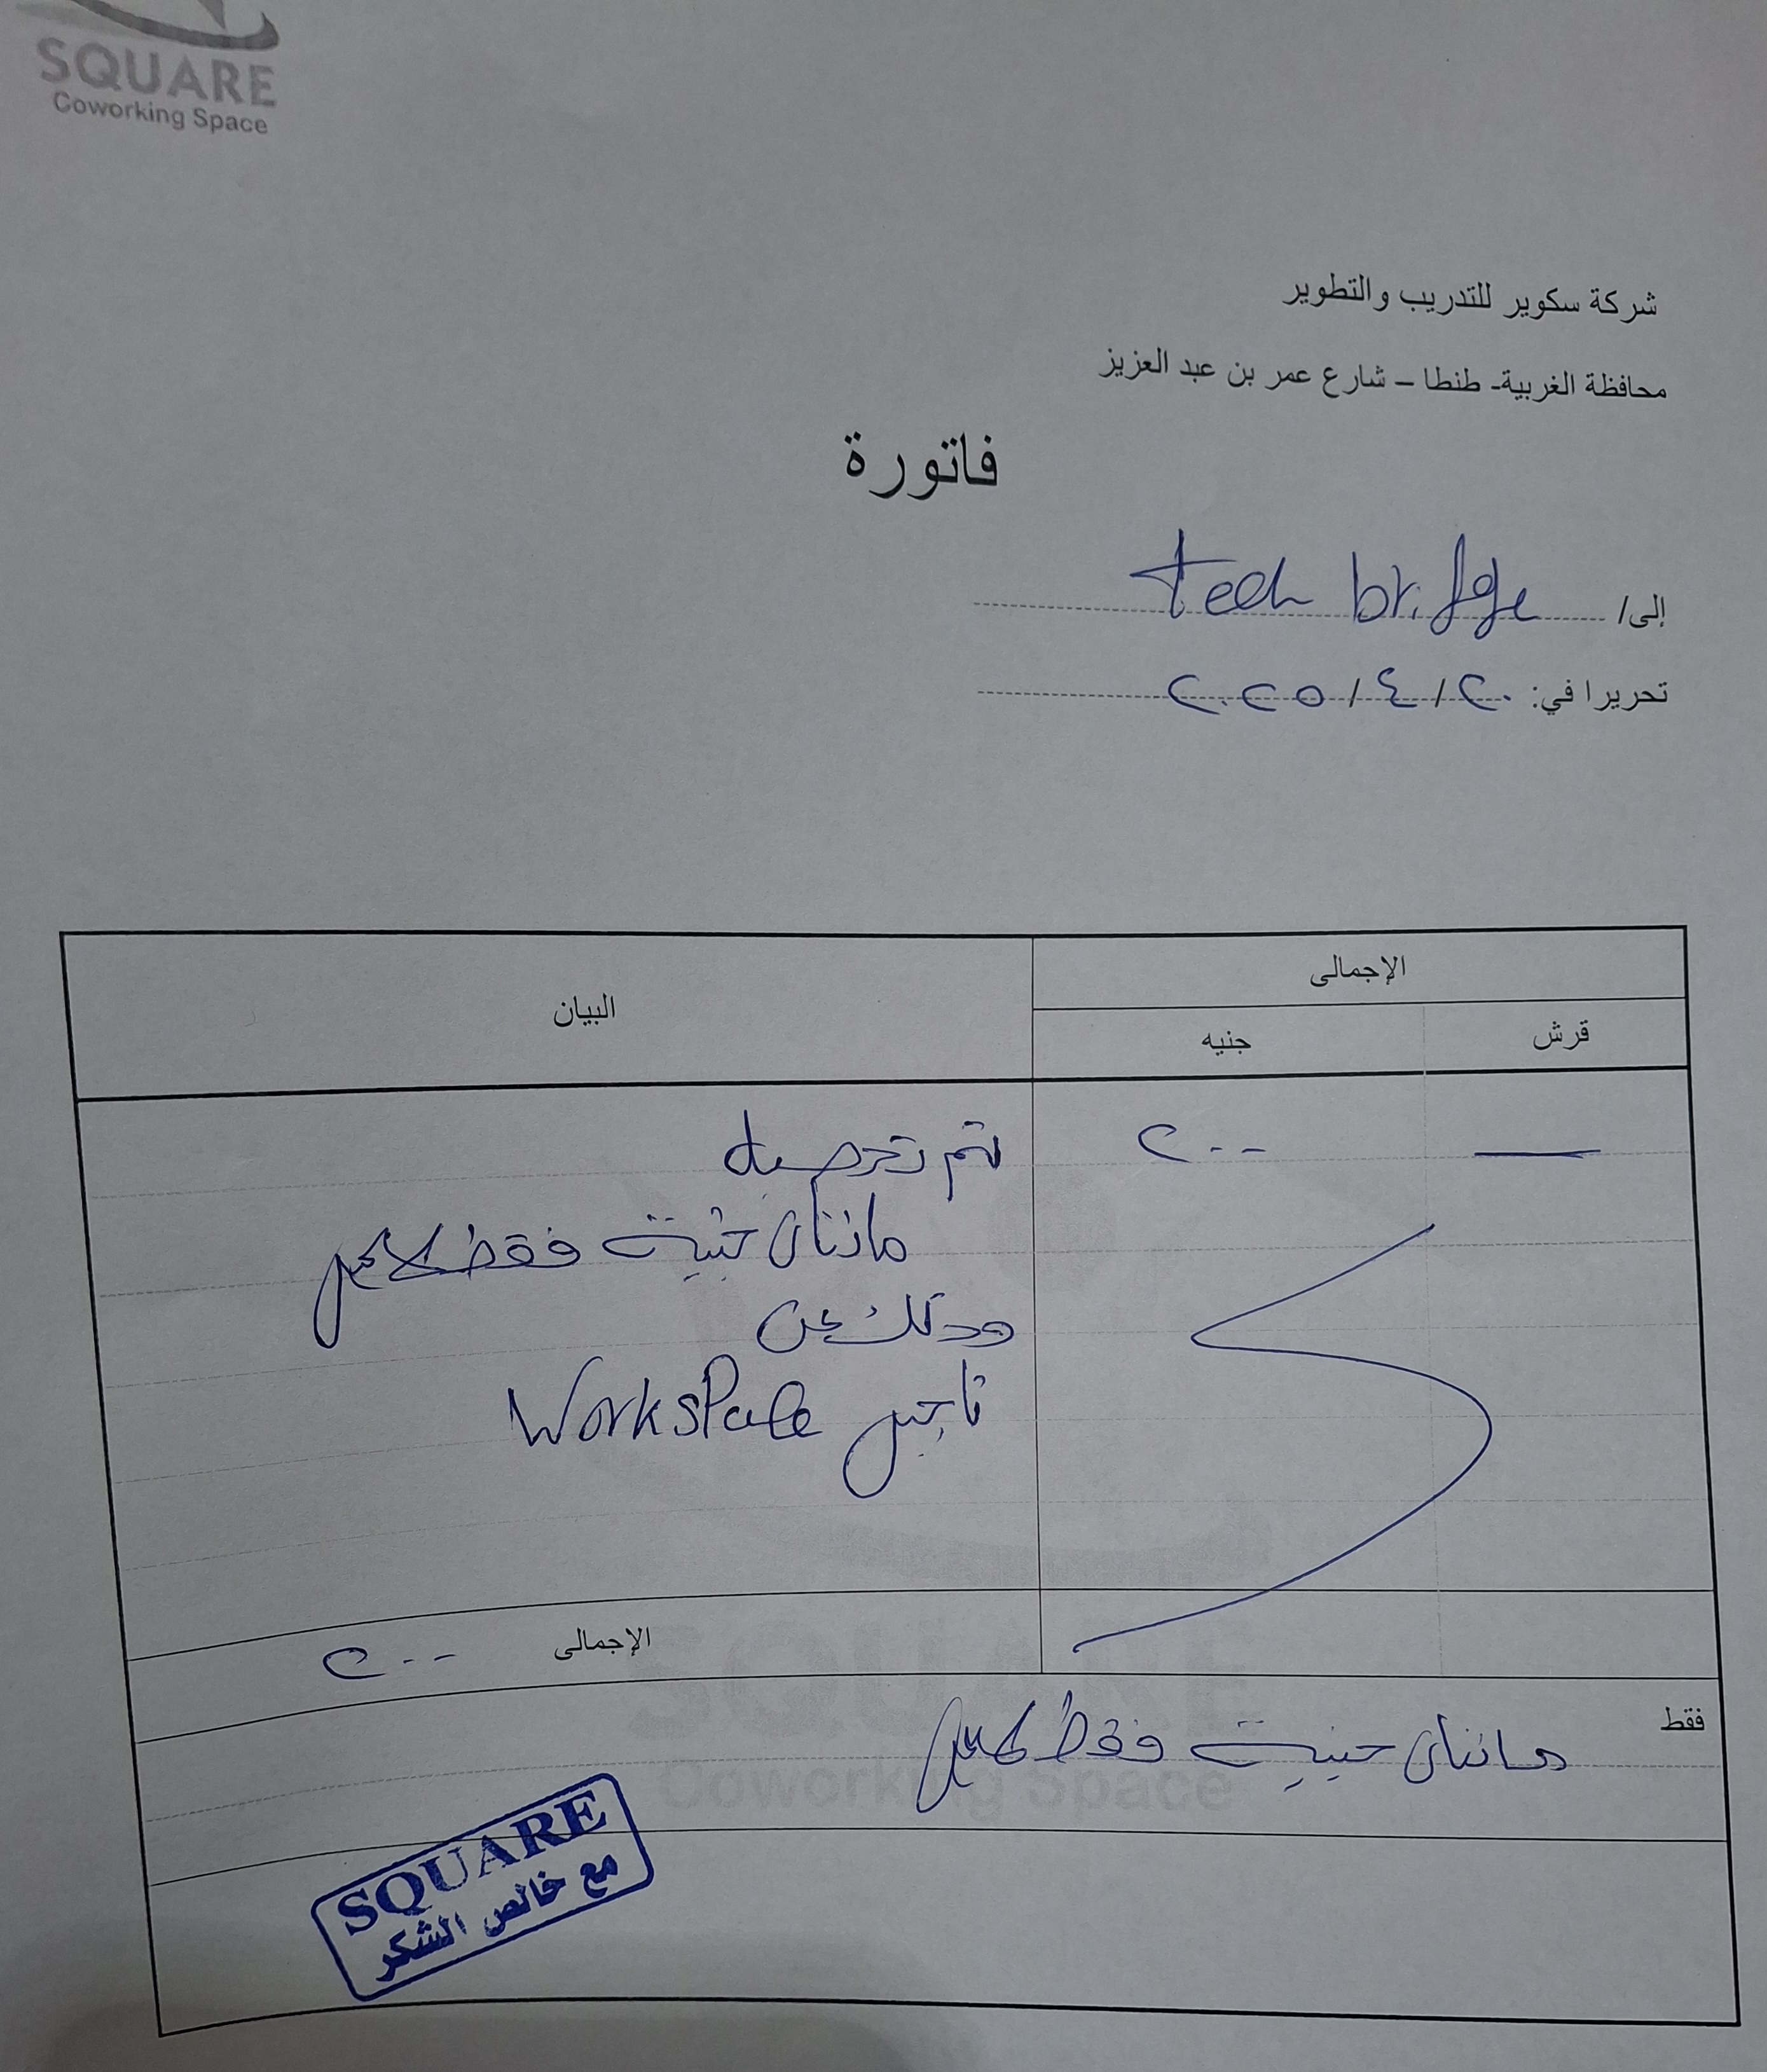 SQUARE
Coworking Space
شركة سكوير للتدريب والتطوير
محافظة الغربية- طنطا – شارع عمر بن عبد العزيز
فاتورة
إلى/ tech bridge
تحريرا في: ٢٠ / ٤ / ٢٠٢٥
الإجمالى
قرش جنيه البيان
— ٢٠٠ تم تحصيل
مائتان جنية فقط لاغير
وذلك عن
تاجير WorkSPace
الإجمالى ٢٠٠
فقط مائتان جنية فقط لاغير
SQUARE
Coworking Space
SQUARE
مع خالص الشكر